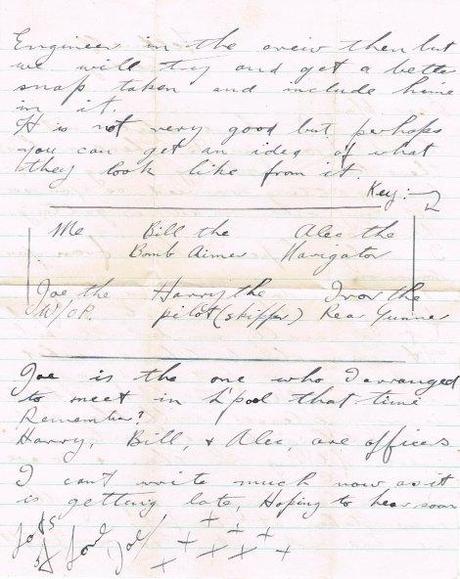 Engineer in the crew then but
we will try and get a better
snap taken and include him
in it.
It is not very good but perhaps
you can get an idea of what
they look like from it.
Key:
Me Bill the Alec the
Bomb Aimer Navigator
Joe the Harry the Ivor the
W/OP. pilot (skipper) Rear Gunner
Joe is the one who I arranged
to meet in L'pool that time
Remember?
Harry, Bill, & Alec, are offices
I can't write much now as it
is getting late, Hoping to hear soon
Lots
of love
x x x x x x x x